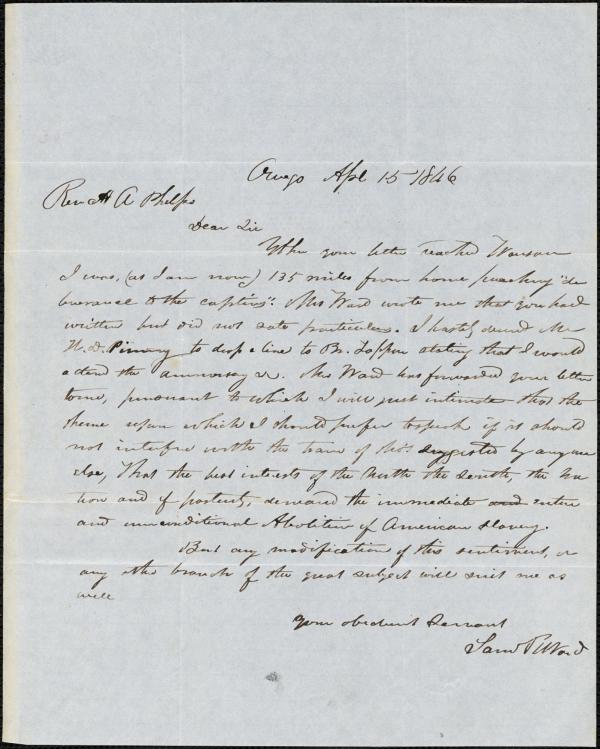 Owego Apl 15 1846
Rev A A Phelps
Dear Sir
When your letter reached Warsaw
I was, (as I am now) 135 miles from home preaching "de
liverance to the captives". Mrs Ward wrote me that you had
written but did not state particulars. I hastily desired Mr
H. D. to drop a line to Br. Tappan stating that I would
attend the anniversary &c. Mrs Ward has forwarded your letter
to me, pursuant to which I will just intimate that the
theme upon which I should prefer to speak if it should
not interfere with the train of tho's suggested by anyone
else, That the best interests of the North the South, the Na
tion and of posterity, demand the immediate and entire
and unconditional Abolition of American slavery.
But any modification of this sentiment, or
any other branch of the great subject will suit me as
well
your obedient Servant
Saml R Ward